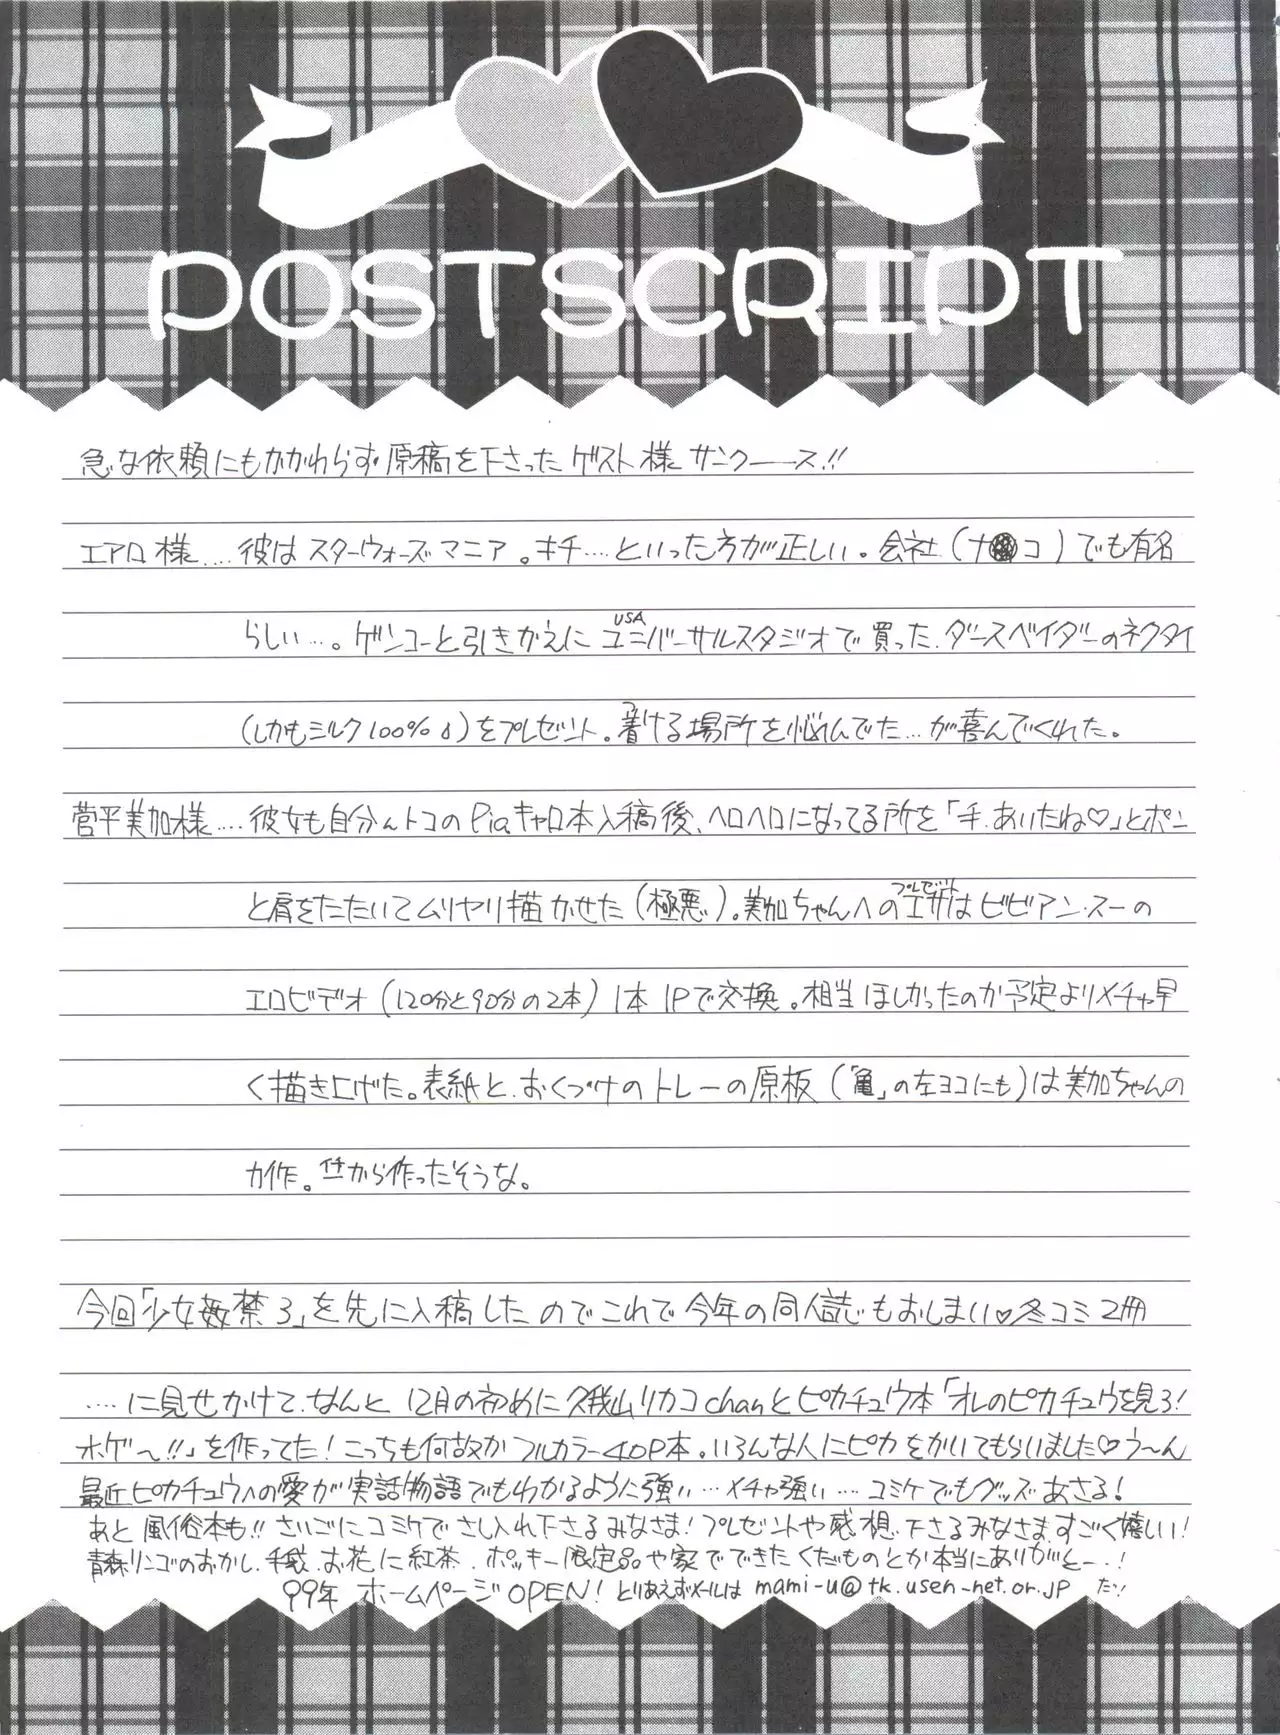 POSTSCRIPT
急な依頼にもかかわらず原稿を下さったゲスト様サンクース!!
エアロ様‥‥彼はスターウォーズマニア。キチ‥‥といった方が正しい。会社(ナ●コ)でも有名
らしい‥‥。ゲンコーと引きかえにUSAユニバーサルスタジオで買った.ダースベイダーのネクタイ
(しかもシルク100%♪)をプレゼント。着(つ)ける場所を悩んでた‥‥が喜んでくれた。
菅平美加様‥‥彼女も自分んトコのPiaキャロ本入稿後、ヘロヘロになってる所を「手.あいたね♡」とポン
と肩をたたいてムリヤリ描かせた(極悪)。美加ちゃんへのエサ(プレゼント)はビビアン・スーの
エロビデオ(120分と90分の2本)1本1Pで交換。相当ほしかったのか予定よりメチャ早
く描き上げた。表紙と.おくづけのトレーの原板(「亀」の左ヨコにも)は美加ちゃんの
力作。1千から作ったそうな。
今回「少女姦禁3」を先に入稿したのでこれで今年の同人誌もおしまい♡冬コミ2冊
‥‥に見せかけて.なんと12月の初めに久我山リカコchanとピカチュウ本「オレのピカチュウを見ろ!
ホゲ〜!!」を作ってた!こっちも何故かフルカラー40P本。いろんな人にピカをかいてもらいました♡う〜ん
最近ピカチュウへの愛が実話物語でもわかるように強い‥‥メチャ強い‥‥コミケでもグッズあさる!
あと風俗本も!!さいごにコミケでさし入れ下さるみなさま!プレゼントや感想.下さるみなさますごく嬉しい!
青森リンゴのおかし.手袋.お花に紅茶.ポッキー限定品や家でできたくだものとか本当にありがとー!
99年 ホームページOPEN! とりあえずメールは mami-u@tk.usen-net.or.jp だッ!